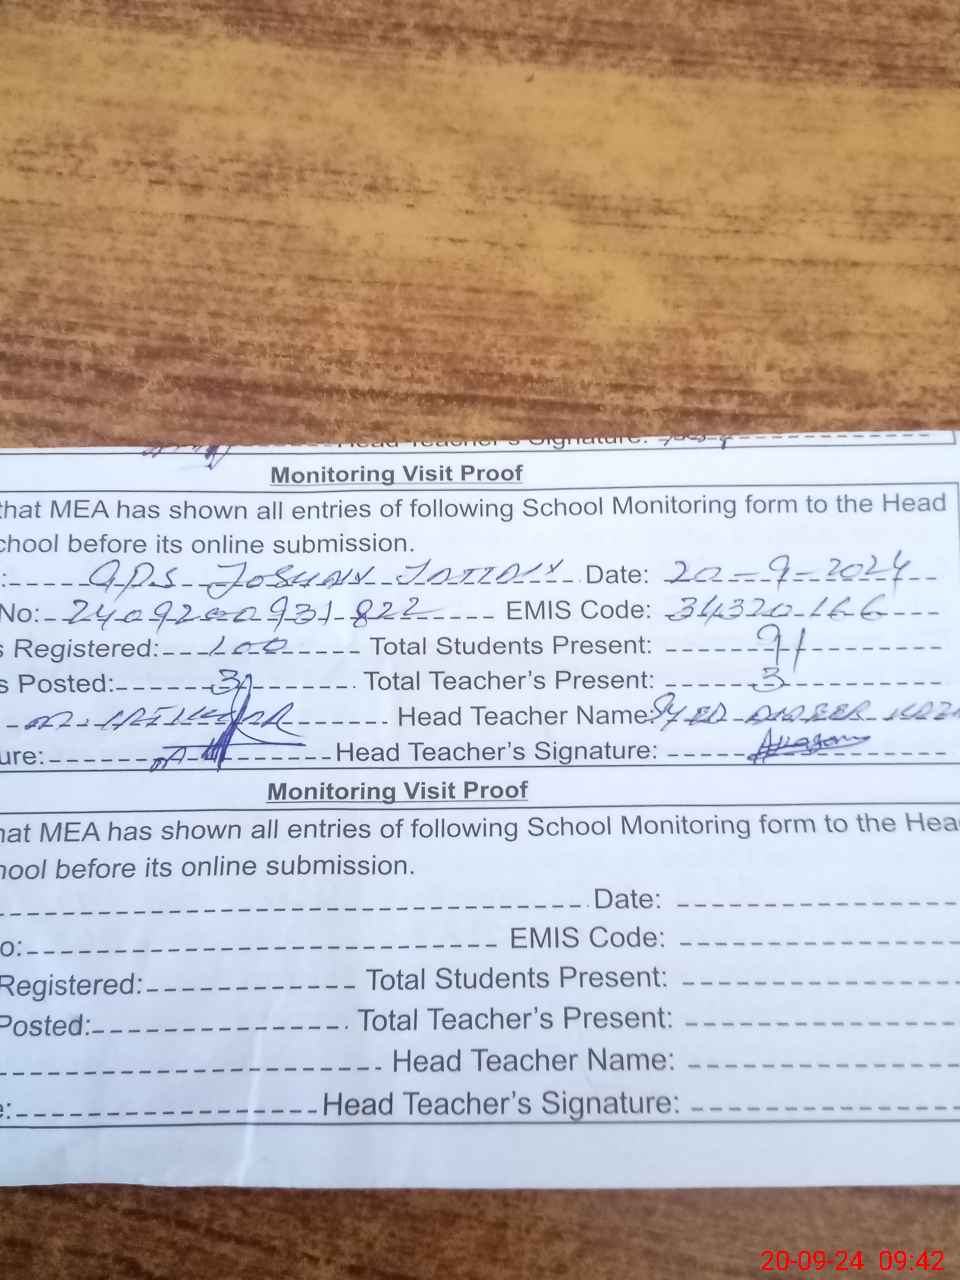 Head Teacher's Signature:
Monitoring Visit Proof
that MEA has shown all entries of following School Monitoring form to the Head
chool before its online submission.
: GPS Date: 20-9-2024
No: EMIS Code: 34320166
s Registered: 100 Total Students Present: 91
s Posted: 3 Total Teacher's Present: 3
Head Teacher Name: SYED
ure: Head Teacher's Signature:
Monitoring Visit Proof
hat MEA has shown all entries of following School Monitoring form to the Hea
hool before its online submission.
Date:
o: EMIS Code:
Registered: Total Students Present:
Posted: Total Teacher's Present:
Head Teacher Name:
e: Head Teacher's Signature:
20-09-24 09:42